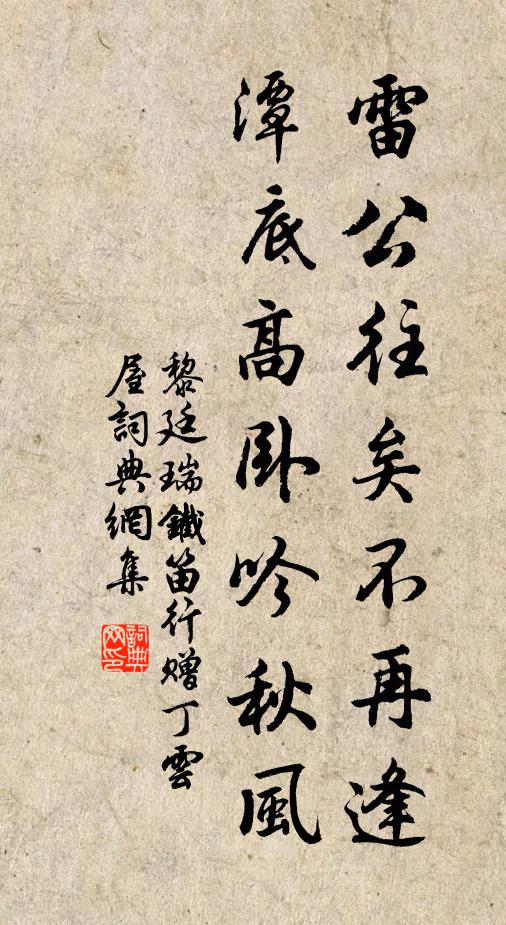 雷公往矣不再逢
潭底高卧吟秋風
黎廷瑞鐵笛行贈丁雲
屋詞典網集
詞典网印